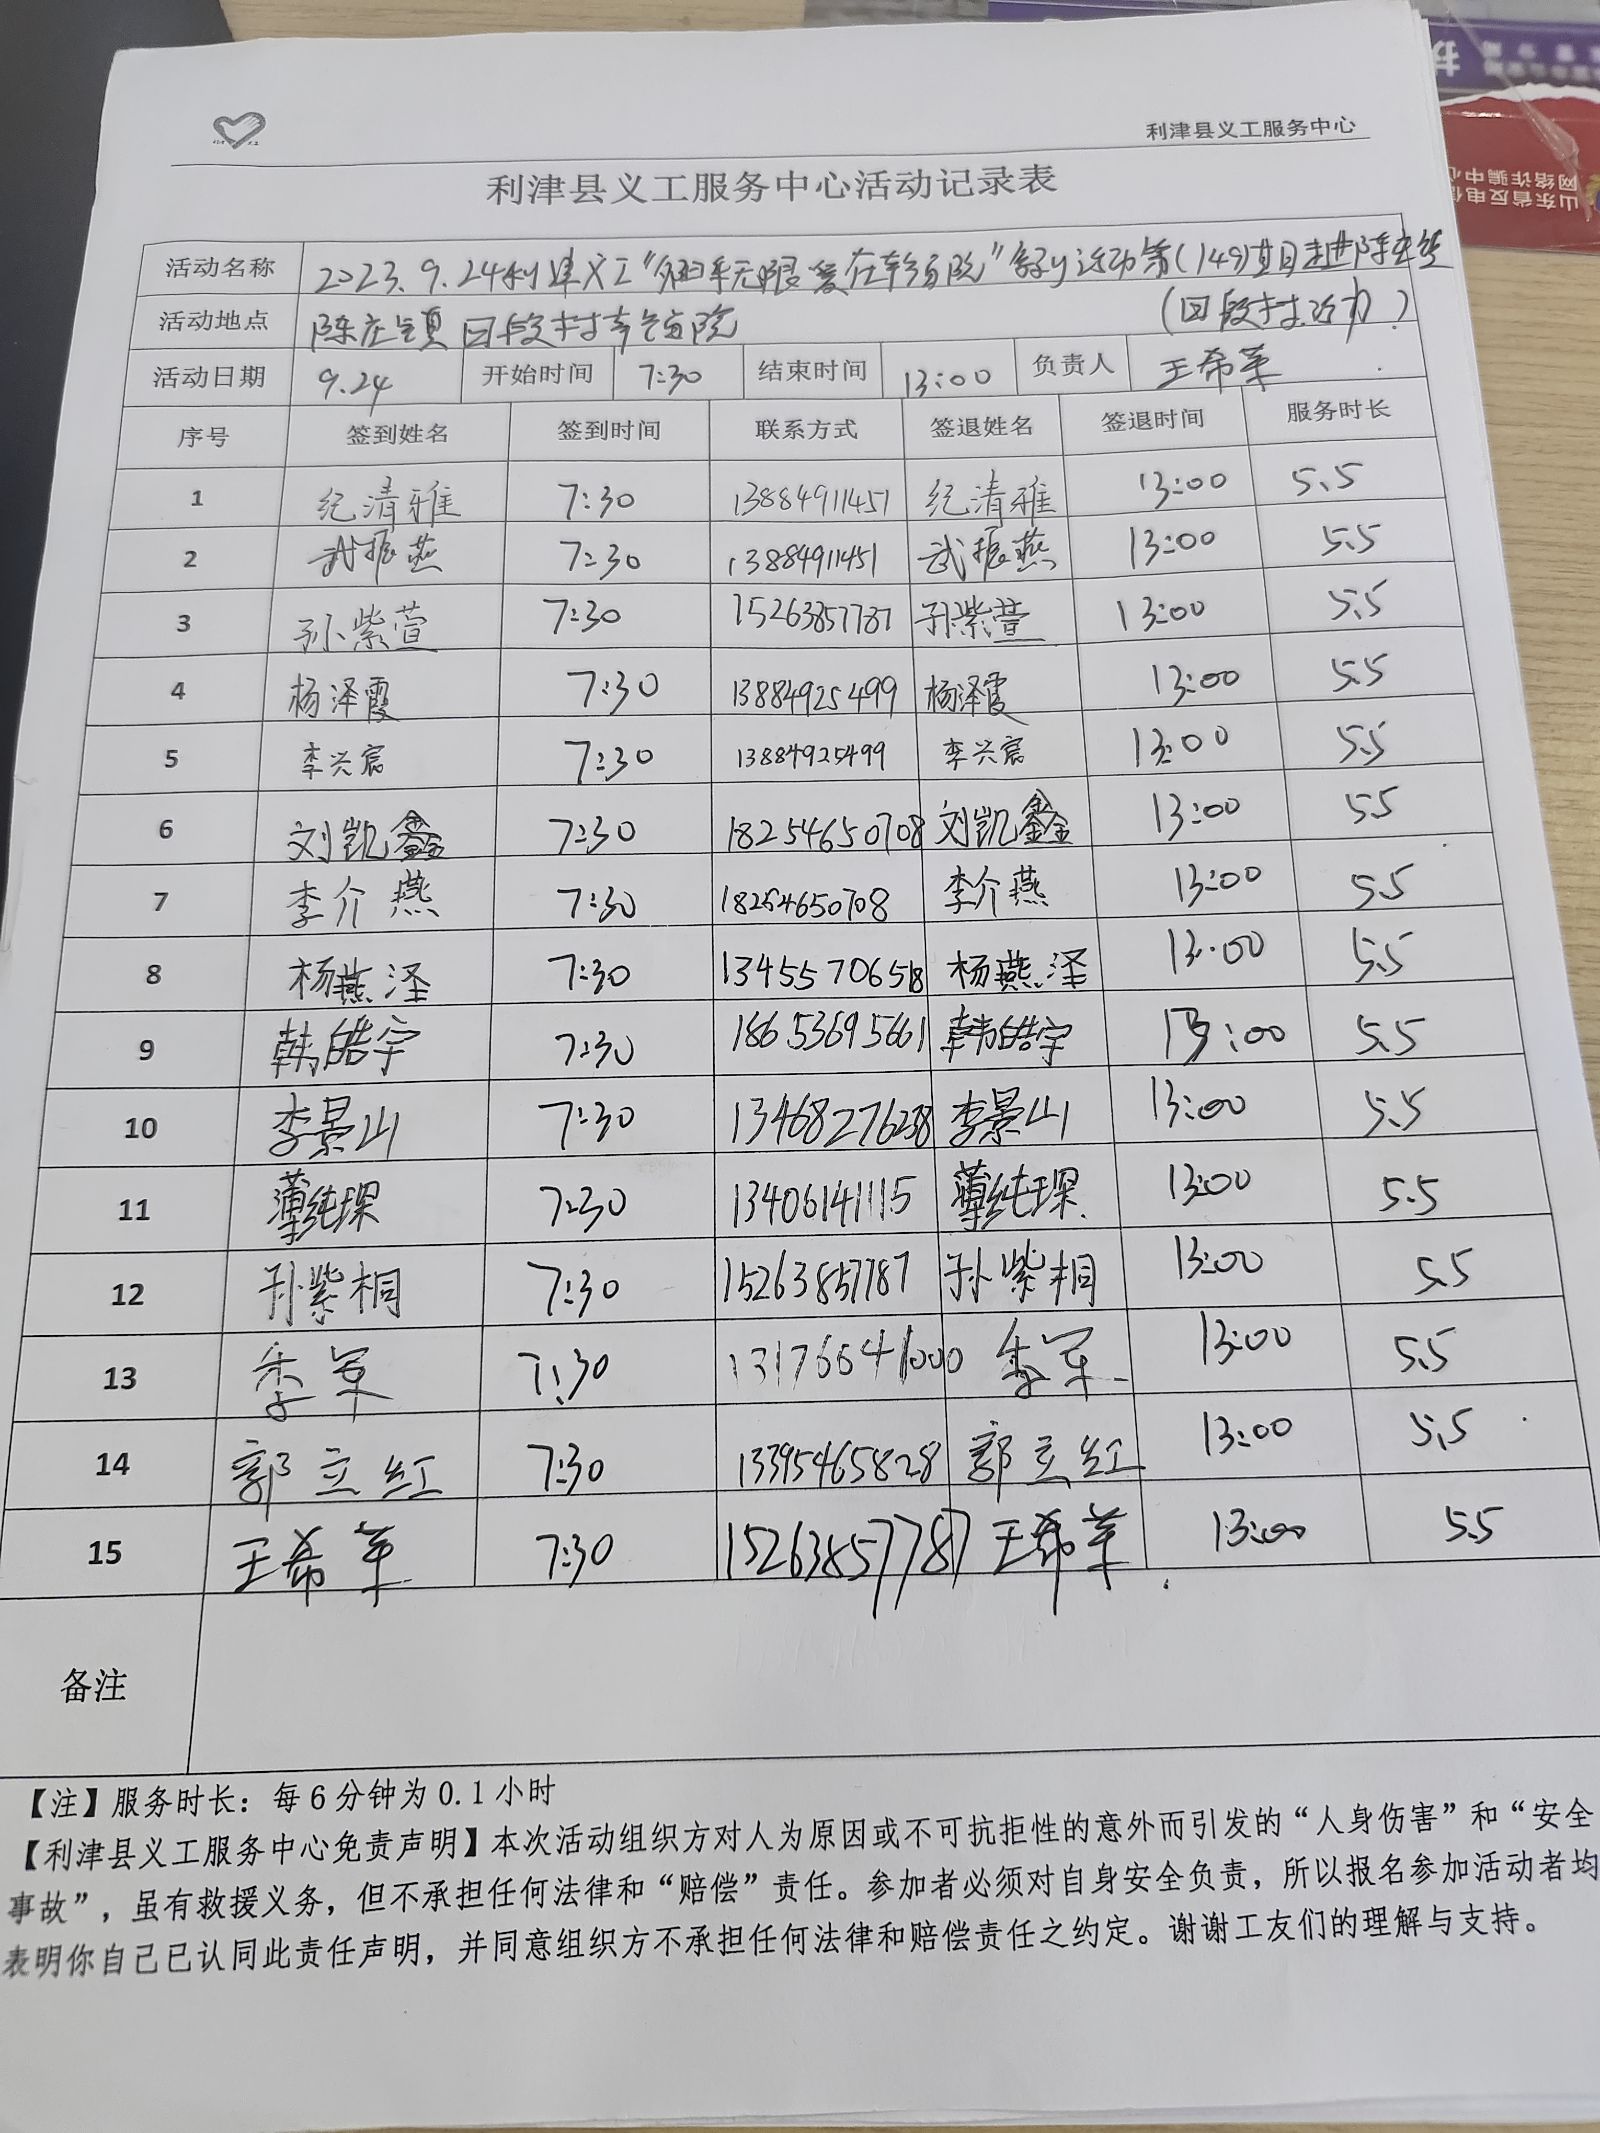 利津县义工服务中心
利津县义工服务中心活动记录表
活动名称 2023.9.24利津义工“夕阳无限爱在幸福院”系列活动第(149)期走进陈庄镇
(四段村活动)
活动地点 陈庄镇四段村幸福院
活动日期 9.24 开始时间 7:30 结束时间 13:00 负责人 王希革
序号 签到姓名 签到时间 联系方式 签退姓名 签退时间 服务时长
1 纪清雅 7:30 13884911451 纪清雅 13:00 5.5
2 武振燕 7:30 13884911451 武振燕 13:00 5.5
3 孙紫萱 7:30 15263857787 孙紫萱 13:00 5.5
4 杨泽霞 7:30 13884925499 杨泽霞 13:00 5.5
5 李兴宸 7:30 13884925499 李兴宸 13:00 5.5
6 刘凯鑫 7:30 18254650708 刘凯鑫 13:00 5.5
7 李介燕 7:30 18254650708 李介燕 13:00 5.5
8 杨燕泽 7:30 杨燕泽 13:00 5.5
9 韩皓宇 7:30 18653695661 韩皓宇 13:00 5.5
10 李景山 7:30 13468276238 李景山 13:00 5.5
11 薄纯琛 7:30 13406141115 薄纯琛 13:00 5.5
12 孙紫桐 7:30 15263857787 孙紫桐 13:00 5.5
13 李军 7:30 13176641000 李军 13:00 5.5
14 郭立红 7:30 13395465828 郭立红 13:00 5.5
15 王希革 7:30 15263857787 王希革 13:00 5.5
备注
【注】服务时长：每6分钟为0.1小时
【利津县义工服务中心免责声明】本次活动组织方对人为原因或不可抗拒性的意外而引发的“人身伤害”和“安全
事故”，虽有救援义务，但不承担任何法律和“赔偿”责任。参加者必须对自身安全负责，所以报名参加活动者均
表明你自己已认同此责任声明，并同意组织方不承担任何法律和赔偿责任之约定。谢谢工友们的理解与支持。
山东省反电信
网络诈骗中心